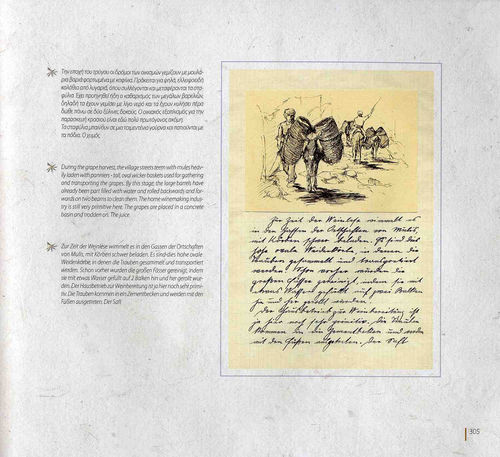 Την εποχή του τρύγου οι δρόμοι των οικισμών γεμίζουν με μουλά-
ρια βαριά φορτωμένα με κοφίνια. Πρόκειται για ψηλά, ελλειψοειδή
καλάθια από λυγαριά, όπου συλλέγονται και μεταφέρονται τα στα-
φύλια. Έχει προηγηθεί ήδη ο καθαρισμός των μεγάλων βαρελιών,
δηλαδή τα έχουν γεμίσει με λίγο νερό και τα έχουν κυλήσει πέρα
δώθε πάνω σε δύο ξύλινες δοκούς. Ο οικιακός εξοπλισμός για την
παρασκευή κρασιού είναι εδώ πολύ πρωτόγονος ακόμη.
Τα σταφύλια μπαίνουν σε μια τσιμεντένια γούρνα και πατιούνται με
τα πόδια. Ο χυμός
During the grape harvest, the village streets teem with mules heav-
ily laden with panniers - tall, oval wicker baskets used for gathering
and transporting the grapes. By this stage, the large barrels have
already been part filled with water and rolled backward and for-
wards on two beams to clean them. The home winemaking industry
is still very primitive here. The grapes are placed in a concrete
basin and trodden on. The juice
Zur Zeit der Weinlese wimmelt es in den Gassen der Ortschaften
von Mulis, mit Körben schwer beladen. Es sind das hohe ovale
Weidenkörbe, in denen die Trauben gesammelt und transportiert
werden. Schon vorher wurden die großen Fässer gereinigt, indem
sie mit etwas Wasser gefüllt auf 2 Balken hin und her gerollt wur-
den. Der Hausbetrieb zur Weinbereitung ist ja hier noch sehr primi-
tiv. Die Trauben kommen in ein Zementbecken und werden mit den
Füßen ausgetreten. Der Saft
Zur Zeit der Weinlese wimmelt es
in den Gassen der Ortschaften von Mulis,
mit Körben schwer beladen. Es sind das
hohe ovale Weidenkörbe, in denen die
Trauben gesammelt und transportiert
werden. Schon vorher wurden die
großen Fässer gereinigt, indem sie mit
etwas Wasser gefüllt auf zwei Balken
hin und her gerollt wurden.
Der Hausbetrieb zur Weinbereitung ist
ja hier noch sehr primitiv. Die Trauben
kommen in ein Zementbecken und werden
mit den Füßen ausgetreten. Der Saft
305